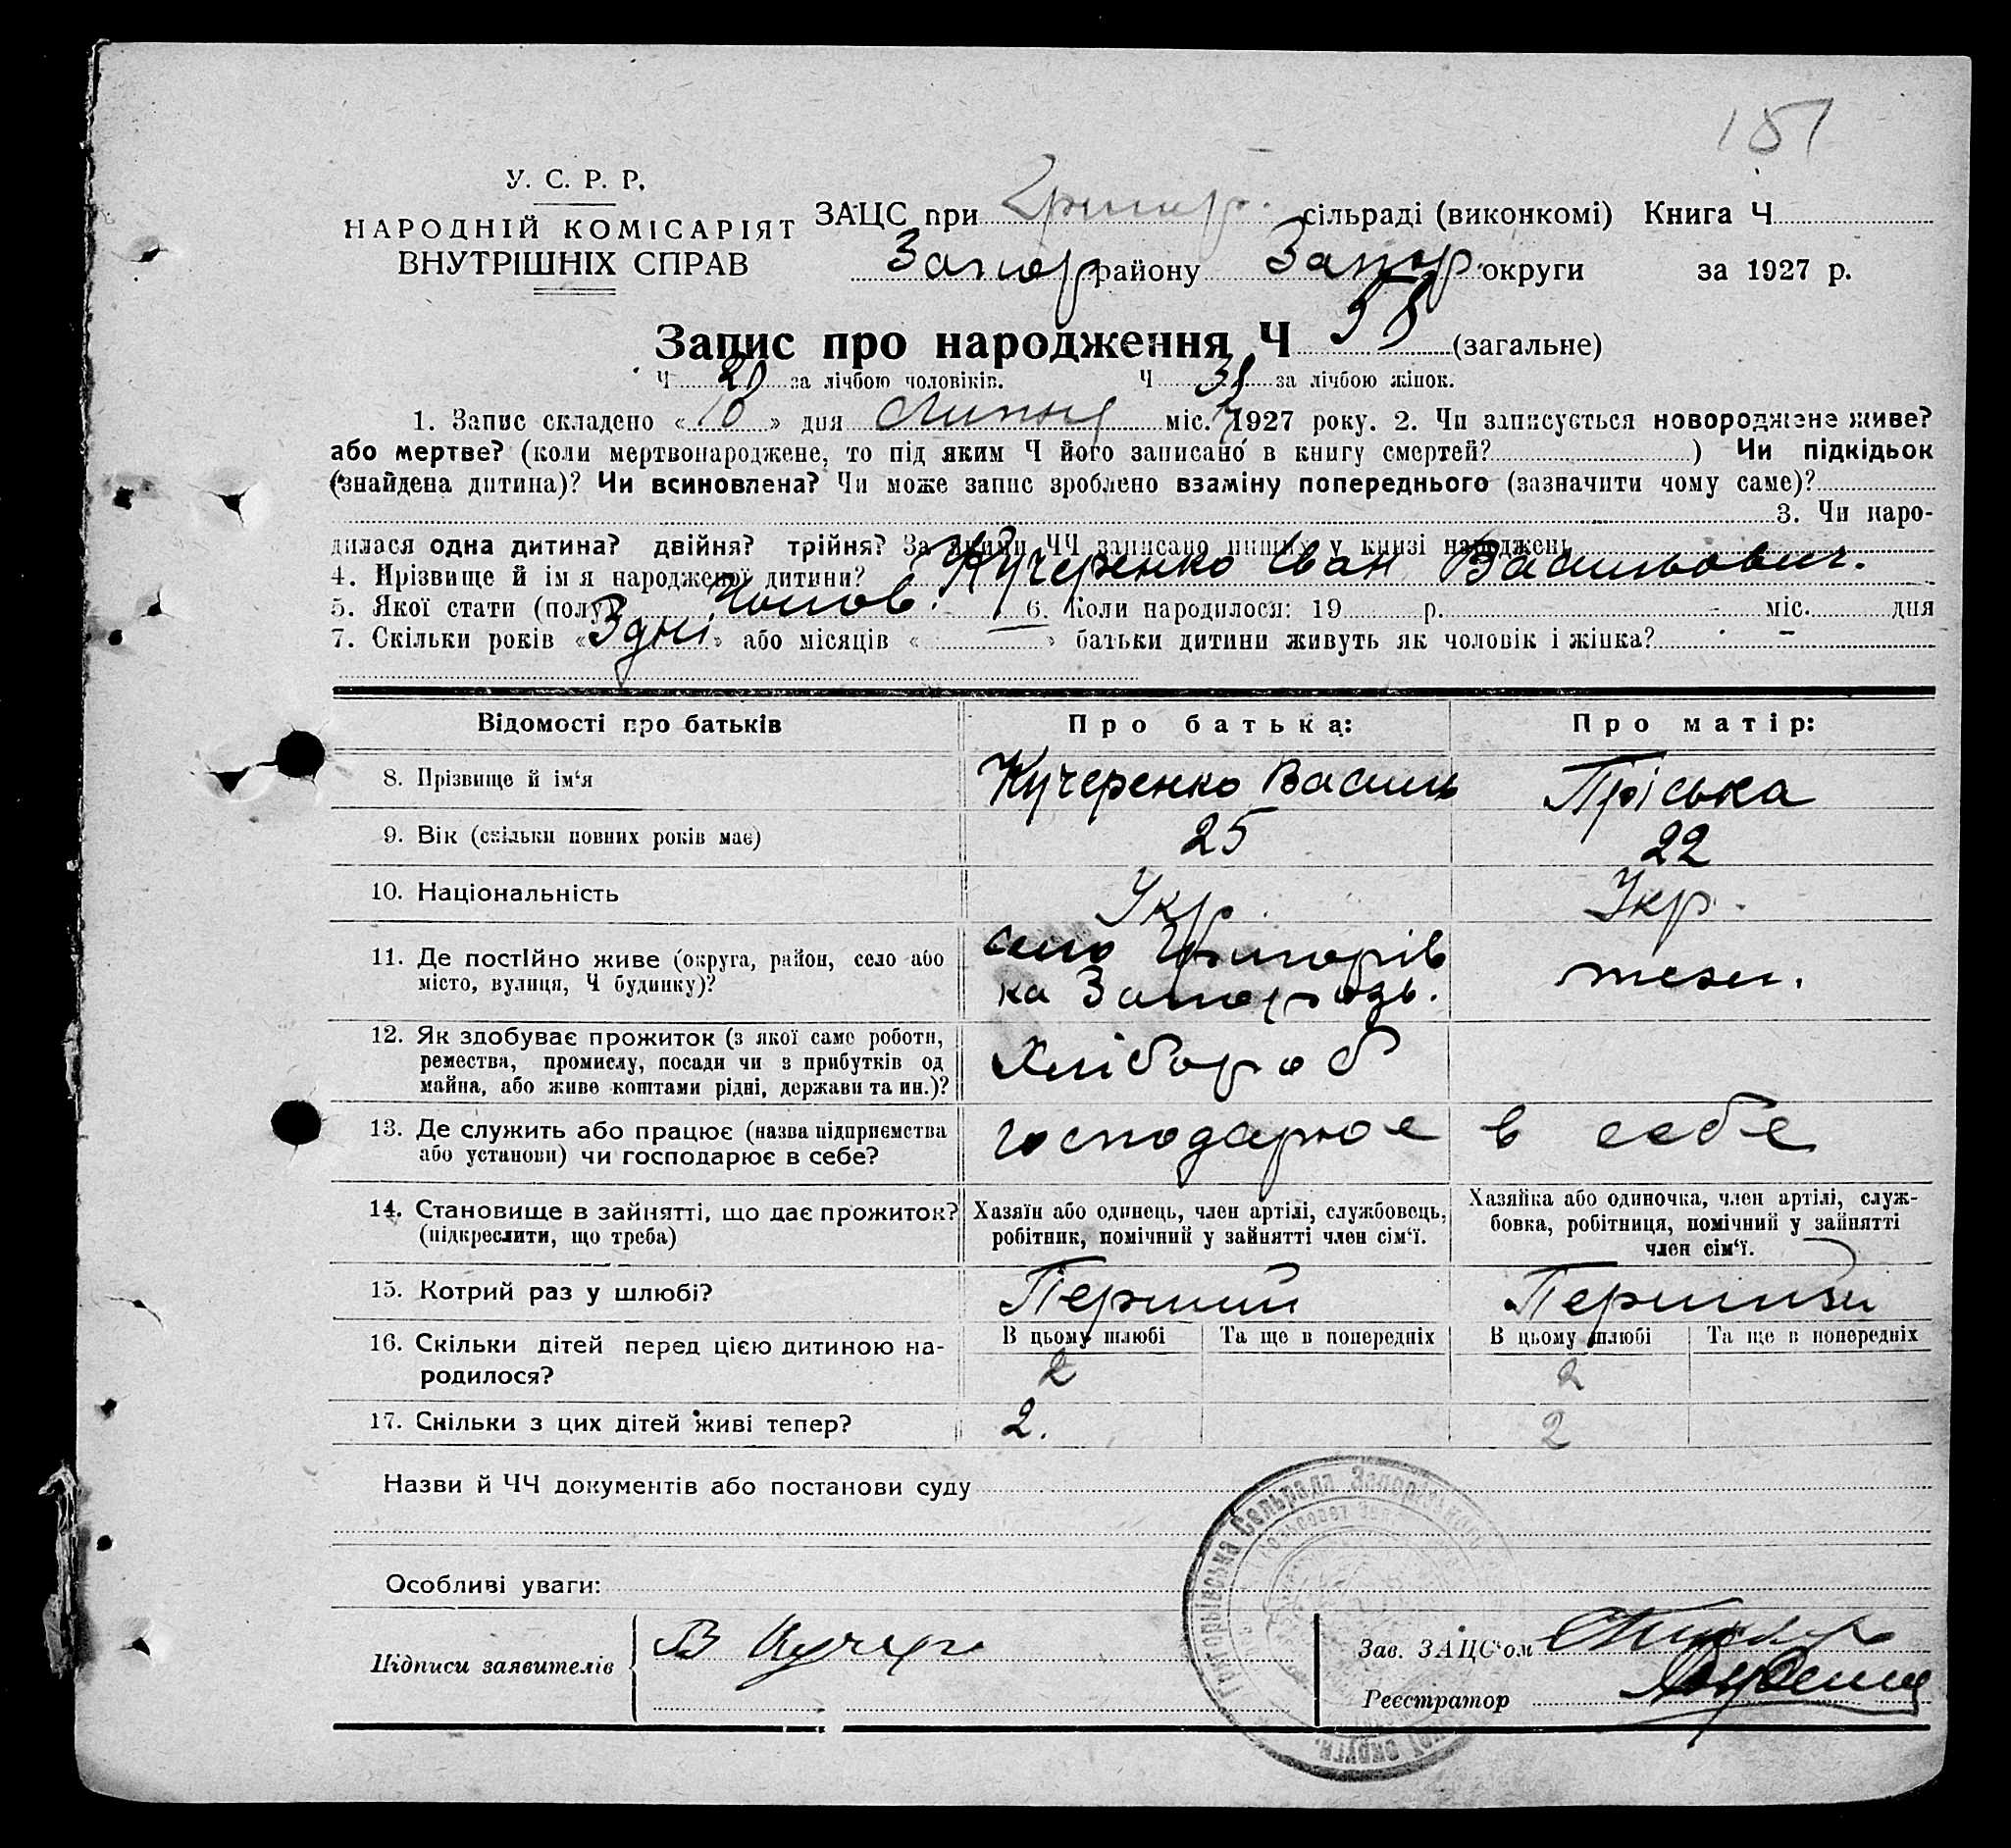 151
У. С. Р. Р.
НАРОДНІЙ КОМІСАРІЯТ
ВНУТРІШНІХ СПРАВ
ЗАЦС при Григор. сільраді (виконкомі) Книга Ч
Запор району Запор. округи за 1927 р.
Запис про народження Ч 58 (загальне)
Ч 20 за лічбою чоловіків. Ч 38 за лічбою жінок.
1. Запис складено « 10 » дня Липня міс. 1927 року. 2. Чи записується новороджене живе?
або мертве? (коли мертвонароджене, то під яким Ч його записано в книгу смертей? ) Чи підкідьок
(знайдена дитина)? Чи всиновлена? Чи може запис зроблено взаміну попереднього (зазначити чому саме)?
3. Чи наро-
дилася одна дитина? двійня? трійня? За якими ЧЧ записано инших у книзі народжень
4. Прізвище й ім я народженої дитини? Кучеренко Іван Васильович.
5. Якої стати (полу) Чолов. 6. Коли народилося: 19 р. міс. дня
7. Скільки років « 3 дні » або місяців « » батьки дитини живуть як чоловік і жінка? -
Відомості про батьків Про батька: Про матір:
8. Прізвище й ім'я Кучеренко Василь Пріська
9. Вік (скільки повних років має) 25 22
10. Національність Укр. Укр.
11. Де постійно живе (округа, район, село або село Григорів
місто, вулиця, Ч будинку)? ка Запорозь. теж.
12. Як здобуває прожиток (з якої саме роботи,
ремества, промислу, посади чи з прибутків од Хлібороб
майна, або живе коштами рідні, держави та ин.)?
13. Де служить або працює (назва підприємства господарює в себе
або установи) чи господарює в себе?
14. Становище в зайнятті, що дає прожиток? Хазяїн або одинець, член артілі, службовець, Хазяйка або одиночка, член артілі, служ-
(підкреслити, що треба) робітник, помічний у зайнятті член сім'ї. бовка, робітниця, помічний у зайнятті
член сім'ї.
15. Котрий раз у шлюбі? Перший Перший
16. Скільки дітей перед цією дитиною на- В цьому шлюбі Та ще в попередніх В цьому шлюбі Та ще в попередніх
родилося? 2 2
17. Скільки з цих дітей живі тепер? 2. 2
Назви й ЧЧ документів або постанови суду
Григорівська Сельрада Запорізького округи.
Особливі уваги:
Підписи заявителів В Кучер
Зав. ЗАЦС'ом
Реєстратор